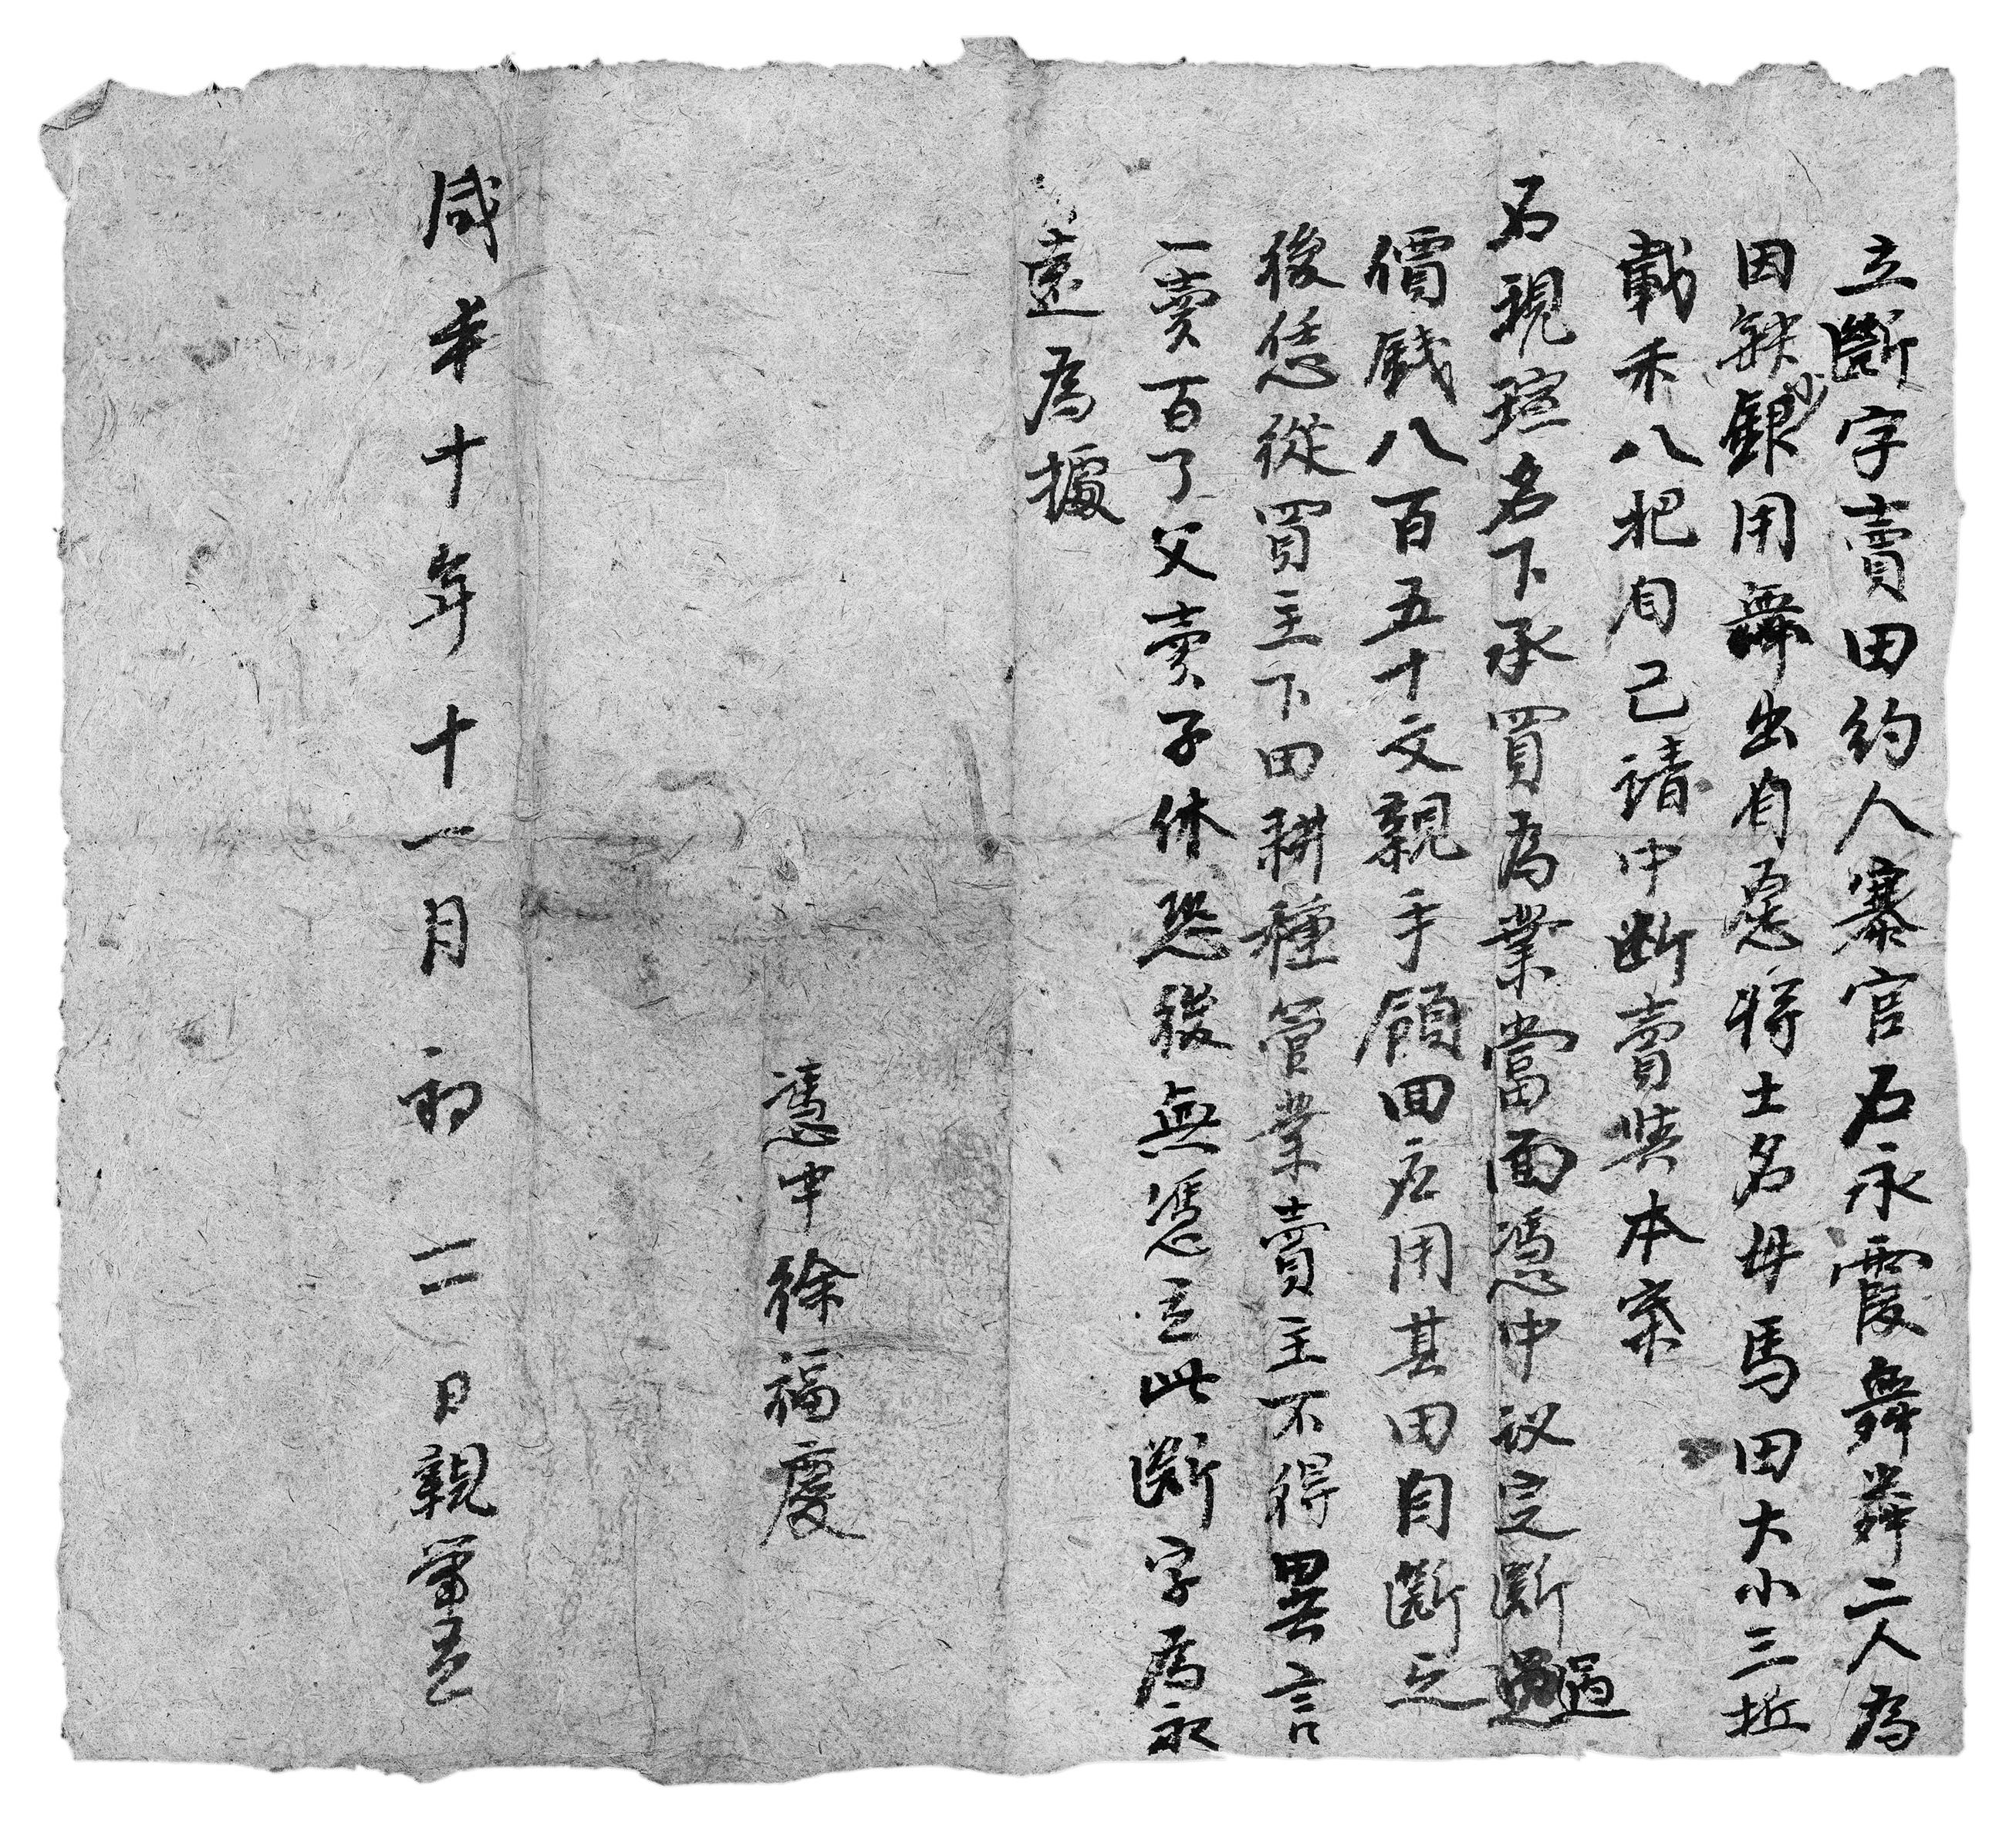 立斷字賣田約人寨官石永霞舞舜二人為
因缺少銀用無出自愿将土名井馬田大小三坵
載禾八把自己請中断賣與本寨
石現瑄名下承買為業當面憑中议定断過
價錢八百五十文親手領囬应用其田自断之
後恁從買主下田耕種管業賣主不得異言
一賣百了父卖子休恐後無憑立此断字為永
遠為據
憑中徐福慶
咸丰十年十一月初二日親筆立